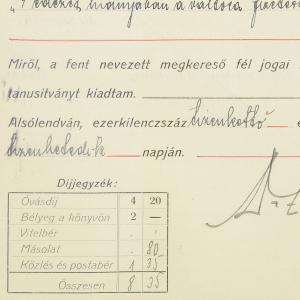 fedezet hiányában a váltóra fizetés
Miről, a fent nevezett megkereső fél jogai
tanusitványt kiadtam.
Alsólendván, ezerkilencszáz tizenkettő
tizenhetedik napján.
Díjjegyzék:
Óvásdíj 4 20
Bélyeg a könyvön 2 —
Vitelbér . .
Másolat . 80
Közlés és postabér 1 35
Összesen 8 35